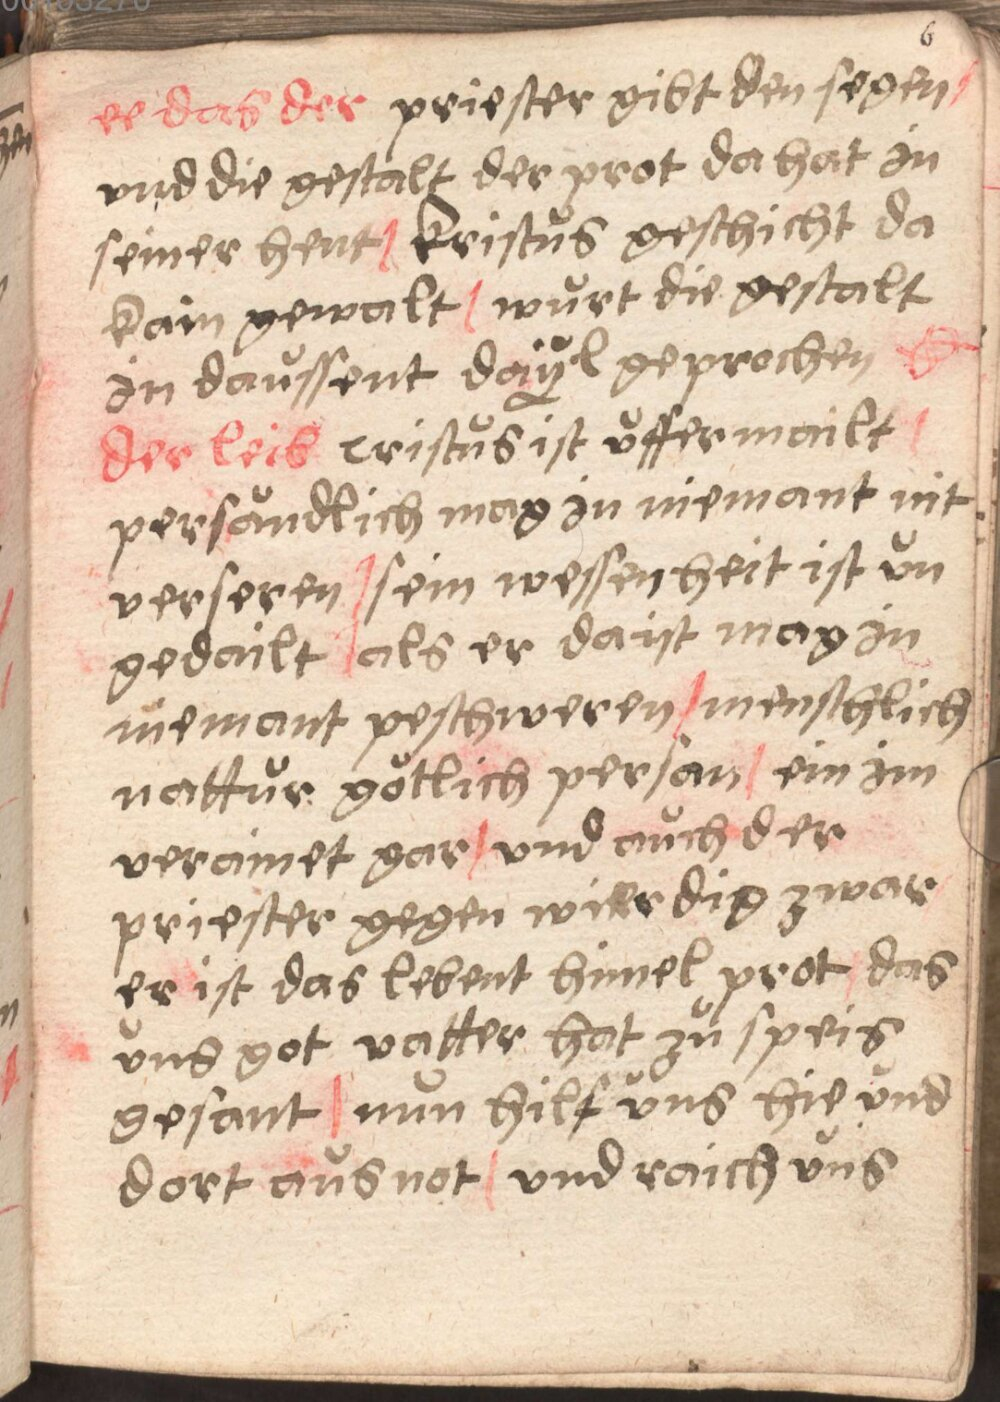 6
ee das der priester gibt den segen /
vnd die gestalt der prot da hat in
seiner hent / kristůs geschicht da
kain gewalt / wůrt die gestalt
in daůssent daÿl geprochen
der leib cristůs ist ůffermailt /
persandlich mag in niemant nit
verseren / sein wessenheit ist ůn
gedailt / als er da ist mag in
niemant peschweren / menschlich
nattůr götlich persan / ein im
verainet gar / vnd aůch der
priester gegen wirdig zwar /
er ist das lebent himel prot / das
ůns got vatter hat zů speis
gesant / nůn hilf ůns hie ůnd
dort aůs not / vnd raich ůns